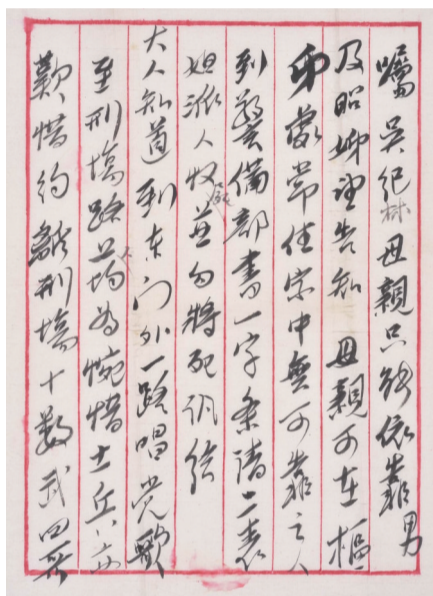 嘱吴纪
母親只能依靠男
及昭娣望告知 母親可在樞
來蒙常住家中無可靠之人
到警備部書一字条请二表
姐派人收並勿將死訊給
大人知道到东门外一路唱党歌
至刑塲路人均为惋惜士兵亦
歎惜约離刑塲十数武四